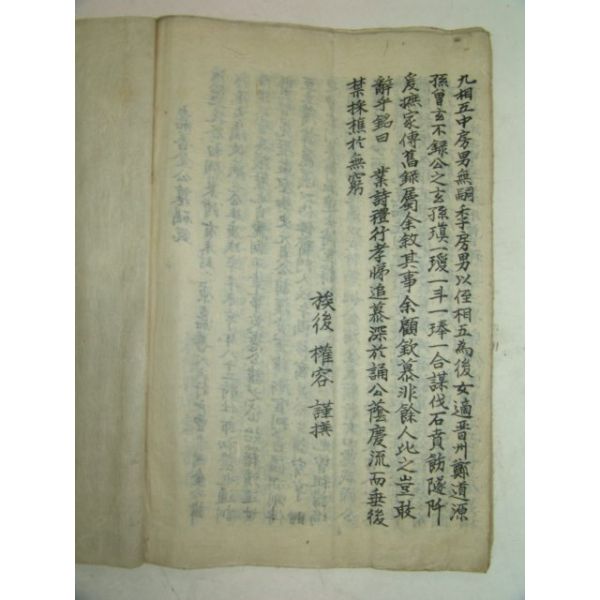 九相五中房男無嗣季房男以侄相五為後女適晋州鄭道源
孫曾玄不録公之玄孫瑱一瓊一斗一琫一合謀伐石賁飭隧阡
爰摭家傳舊録屬余敘其事余顧欽慕非餘人比之豈敢
辭乎銘曰 業詩禮行孝悌追慕深於誦公蔭慶流而垂後
禁採樵於無窮
族後 權容 謹撰